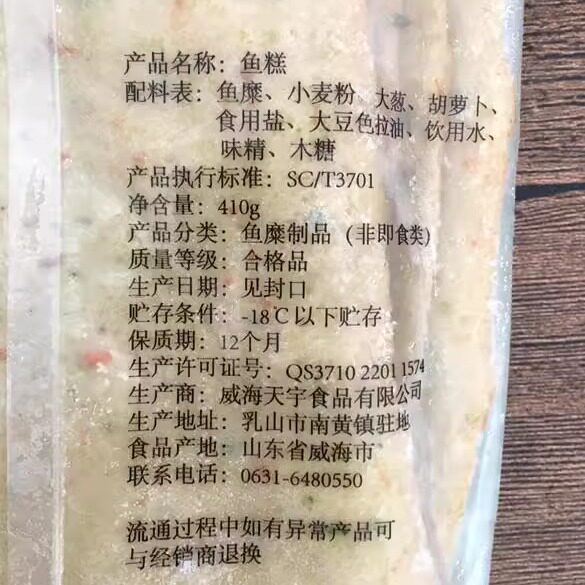 产品名称：鱼糕
配料表：鱼糜、小麦粉、大葱、胡萝卜、
食用盐、大豆色拉油、饮用水、
味精、木糖
产品执行标准：SC/T3701
净含量：410g
产品分类：鱼糜制品（非即食类）
质量等级：合格品
生产日期：见封口
贮存条件：-18℃以下贮存
保质期：12个月
生产许可证号：QS3710 2201 1574
生产商：威海天宇食品有限公司
生产地址：乳山市南黄镇驻地
食品产地：山东省威海市
联系电话：0631-6480550
流通过程中如有异常产品可
与经销商退换